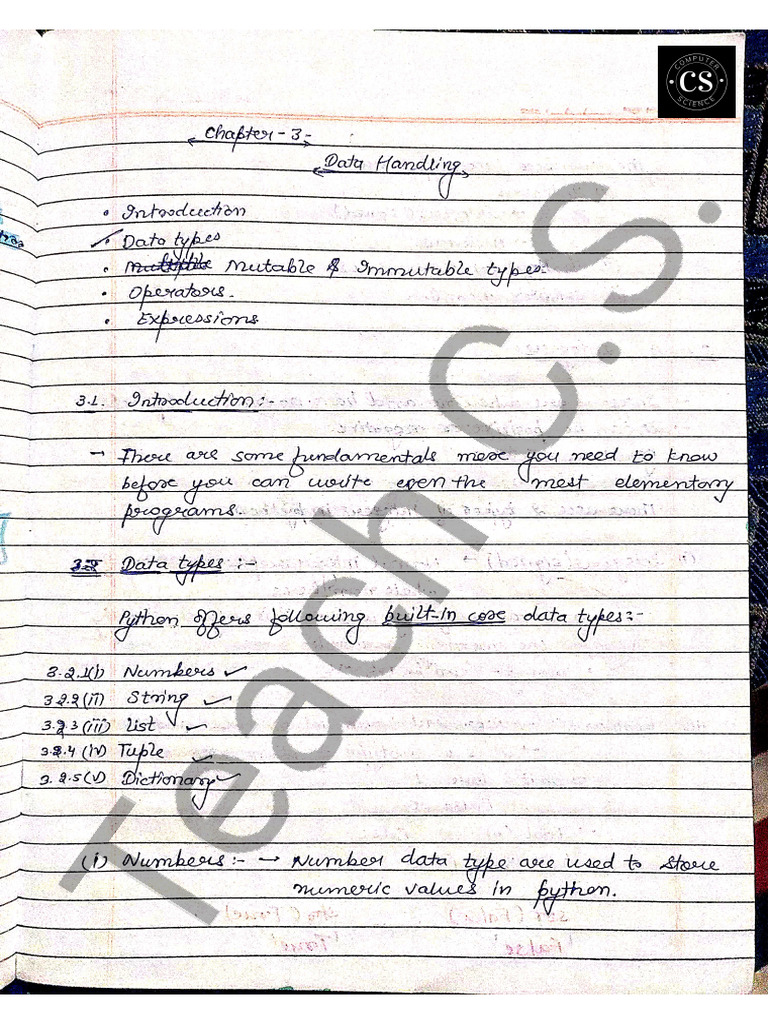 COMPUTER
CS
SCIENCE
Chapter - 3 -
Data Handling
• Introduction
• Data types
• Mutable & Immutable types:-
• Operators.
• Expressions
3.1. Introduction:-
- There are some fundamentals more you need to know
before you can write even the most elementary
programs.
3.2 Data types :-
Python offers following built-in core data types:-
3.2.1(i) Numbers ✓
3.2.2(ii) String ✓
3.2.3(iii) List ✓
3.2.4(iv) Tuple ✓
3.2.5(v) Dictionary ✓
(i) Numbers:- → Number data type are used to store
numeric values in python.
Teach C.S.